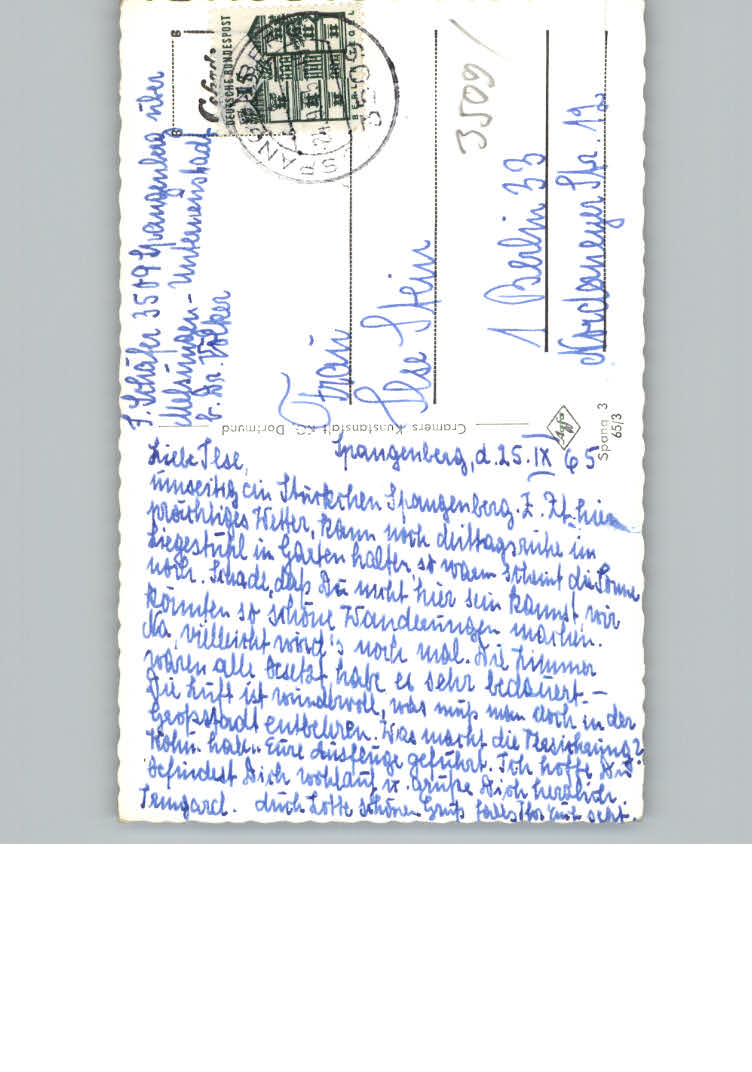 Spangenberg, d. 25. IX 65
Liebe Ilse,
umseitig ein Stückchen Spangenberg. Z. Zt. hier
prächtiges Wetter, kann noch Mittagsruhe im
Liegestuhl im Garten halten, so warm scheint die Sonne
noch. Schade, daß Du nicht hier sein kannst, wir
könnten so schöne Wanderungen machen.
Na, vielleicht wird's noch mal. Die Zimmer
waren alle besetzt, habe es sehr bedauert. –
Die Luft ist wundervoll, was muß man doch in der
Großstadt entbehren. Was macht die Versicherung?
Wohin haben Eure Ausflüge geführt. Ich hoffe Du
befindest Dich wohlauf u. grüße Dich herzlich
Irmgard. Auch Lotte schönen Gruß falls Ihr Euch seht.
I. Schäfer 3509 Spangenberg über
Melsungen - Unterneustadt
b. Dr. Völker
Frau
Ilse Stein
1 Berlin 33
Norderneyer Str. 19
3509
DEUSCHE BUNDESPOST
BERLIN
SPANGENBERG
3509
Cramers Kunstanstalt KG. Dortmund
Spang 3
65/3